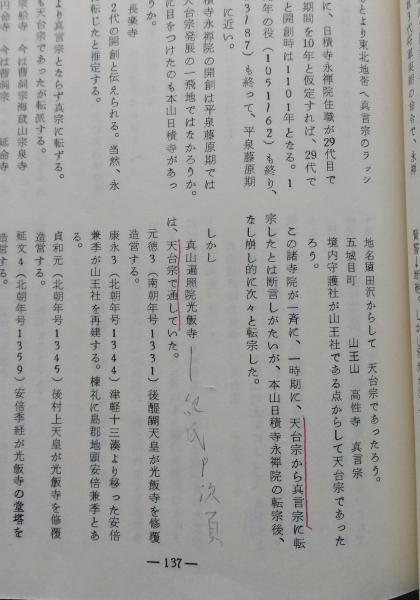 とより東北地帯へ真言宗のラッシ
に、日積寺永禅院住職が29代目で
期間を10年と仮定すれば、29代で
と開創時は1101年となる。1
年の役(1051/62)も終り、
3/87)も終って、平泉藤原期
に近い。
積寺永禅院の開創は平泉藤原期では
天台宗発展の一飛地ではなかろうか。
に目をつけたのも本山日積寺があっ
うか。
長楽寺
2代の開創と伝えられる。当然、永
に転じたと推定する。
より真言宗とならず真宗に転ずる。
も天台宗であったが転派する。
今は曹洞宗海蔵山宗泉寺
今は曹洞宗 延命寺
地名猿田沢からして 天台宗であったろう。
五城目町 山王山 高性寺 真言宗
境内守護社が山王社である点からして天台宗であった
ろう。
この諸寺院が一斉に、一時期に、天台宗から真言宗に転
宗したとは断言しがたいが、本山日積寺永禅院の転宗後、
なし崩し的に次々と転宗した。
しかし
真山遍照院光飯寺
は、天台宗で通していた。
元徳3(南朝年号1331)後醍醐天皇が光飯寺を修覆
造営する。
康永3(北朝年号1344)津軽十三湊より移った安倍
兼季が山王社を再建する。棟札に島郡地頭安倍兼季とあ
る。
貞和元(北朝年号1345)後村上天皇が光飯寺を修覆
造営する。
延文4(北朝年号1359)安倍季経が光飯寺の堂塔を
造営する。
—137—